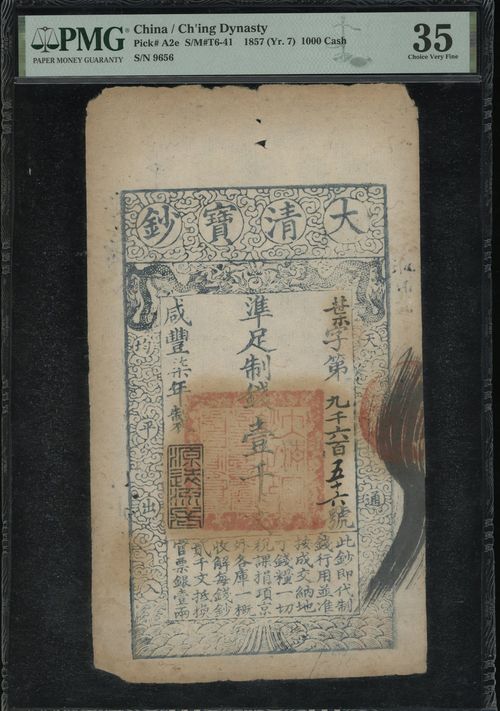 PMG
PAPER MONEY GUARANTY
China / Ch'ing Dynasty
Pick# A2e S/M#T6-41 1857 (Yr. 7) 1000 Cash
S/N 9656
35
Choice Very Fine
大清寶鈔
天
通
字第
九千六百五十六
號
準足制錢壹千
咸豐柒年
均
平
出
入
源遠流長
此鈔即代制
錢行用並准
按成交納地
丁錢糧一切
稅課捐項京
外各庫一概
收解每錢鈔
貳千文抵換
官票銀壹兩